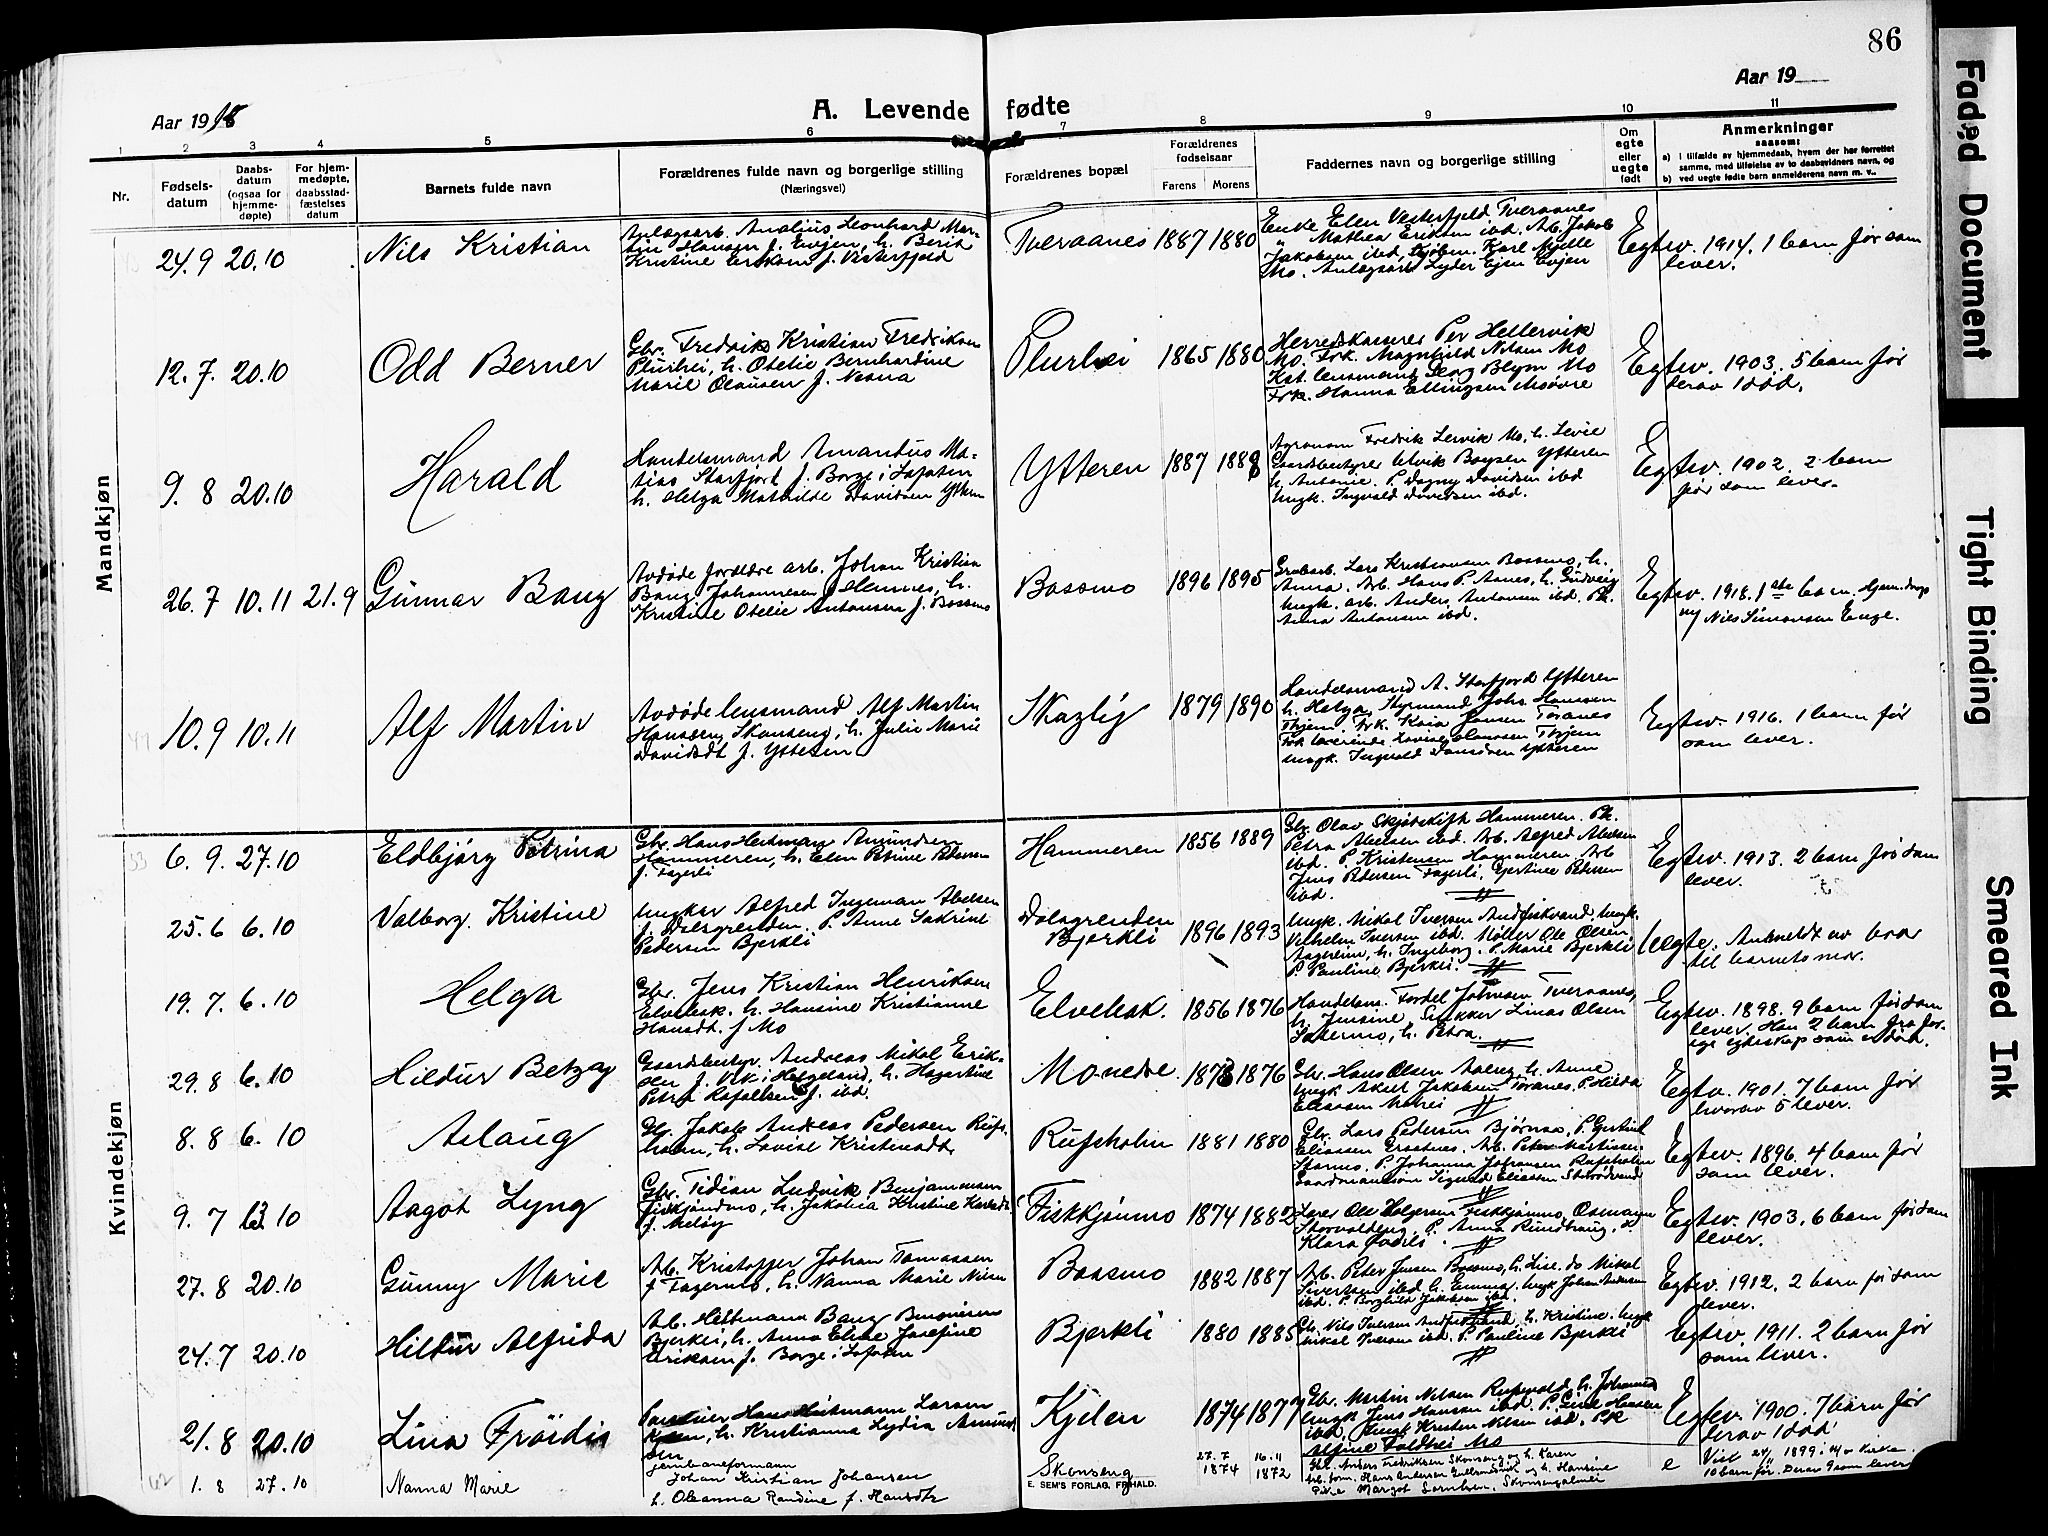 86
Aar 1918
A. Levende fødte
Aar 19
1 2 3 4 5 6 7 8 9 10 11
Nr.
Fødsels-
datum
Daabs-
datum
(ogsaa for
hjemme-
døpte)
For hjem-
medøpte,
daabsstad-
fæstelses
datum
Barnets fulde navn
Forældrenes fulde navn og borgerlige stilling
(Næringsvei)
Forældrenes bopæl
Forældrenes
fødselsaar
Farens Morens
Faddernes navn og borgerlige stilling
Om
egte
eller
uegte
født
Anmerkninger
saasom:
a) i tilfælde av hjemmedaab, hvem der har forrettet
samme, med tilføielse av to daabsvidners navn, og
b) ved uegte fødte barn anmelderens navn m. v..
Mandkjøn
24.9 20.10 Nils Kristian
Anlægsarb. Analius Leonhard Mar-
tin Hansen f. Evjen, h. Berit
Kristine Eriksen f. Vesterfjeld
Tveraanes 1887 1880
Enke Elen Vesterfjeld Tveraanes
" Mathea Eriksen ibd. Arb. Jakob
Jakobsen ibd. Karl Mjelle
Mo. Anlægsarb. Lyder Ejen Evjen
Egte v. 1914. 1 barn før som
lever.
12.7. 20.10 Odd Berner
Gbr. Fredrik Kristian Fredriksen
Plurhei, h. Otelie Bernhardine
Marie Olausen f. Nesna
Plurhei 1865 1880
Herredskasserer Per Hellervik
Mo. Frk. Magnhild Nilsen Mo
Kst. lensmand Georg Blyn Mo
Frk. Hanna Ellingsen
Egte v. 1903. 5 barn før
derav 1 død.
9.8 20.10 Harald
Handelsmand Amandus Ma-
tias Storfjord f. Borge i Lofoten
h. Helga Mathilde Davidsen Ytteren
Ytteren 1887 1888
Agronom Fredrik Lervik Mo, h. Levie
Gaardsbestyrer Boysen Ytteren
h. Antonie. P. Dagny Davidsen ibd
Ungk. Ingvald Davidsen ibd.
Egte v. 1902. 2 barn
før som lever.
26.7 10.11 21.9 Gunnar Bang
Avdøde forældre arb. Johan Kristian
Bang Johannesen Hemnes, h.
Kristine Otelie Antonsen f. Bossmo
Bossmo 1896 1895
Grubearb. Lars Kristensen Bossmo, h.
Anna. Arb. Hans P. Aanes, h. Gudveig
Ungk. arb. Anders Antonsen ibd. Pk.
Anna Antonsen ibd.
Egte v. 1918. 1ste barn. Hjem. døpt
av Nils Simonsen Enge.
10.9 10.11 Alf Martin
Avdøde lensmand Alf Martin
Hanssen, Skonseng, h. Julie Marie
Davidsdt f. Ytteren
Skaglig 1879 1890
Handelsmand A. Storfjord Ytteren
h. Helga, Styrmand John Hanssen
Thjem. Frk. Kaia Jensen Toranes
Frk lærerinde Lovise Hanssen Thjem
Ungk. Ingvald Davidsen Ytteren
Egte v. 1916. 1 barn før
som lever.
Kvindekjøn
6.9. 27.10 Eldbjørg Petrina
Gbr. Hans Heitmann Amundsen
Hammeren, h. Elen Petrine Pedersen
f. Fagerli
Hammeren 1856 1889
Gbr. Olav Skjetskift Hammeren. Pk.
Petra Abelsen ibd. Arb. Alfred Abelsen
ibd. P. Kristensen Hammeren Arb
Jens Pedersen Fagerli, Gjertine Petersen
ibd.
Egte v. 1913. 2 barn før som
lever.
25.6 6.10 Valborg Kristine
Ungkar Alfred Ingeman Abelsen
f. Dalsgrenden. P. Anne Sakrine
Pedersen Bjerkli
Dalsgrenden
Bjerkli 1896 1893
Ungk. Mikal Iversen Andfiskvand, Ungk.
Vilhelm Iversen ibd. Møller Ole Olsen
Aagerlin, h. Ingeborg. P. Marie Bjerkli
P. Pauline Bjerkli.
Uegte. Anmeldt av bror
til barnets mor.
19.7. 6.10 Helga
Gbr. Jens Kristian Henriksen
Elvebak. h. Hansine Kristianne
Hansdt. f. Mo
Elvebak. 1856 1876
Handelsm. Fordel Johnsen Tveraanes,
h. Jensine, Snekker Linas Olsen
Sætermo, h. Petra.
Egte v. 1898. 9 barn før som
lever. Han 2 barn fra for-
ige egteskap som er død.
29.8 6.10 Hildur Betzay
Gaardsbestyr. Andreas Mikal Erik-
sen f. Vik i Helgeland, h. Hagerline
Petra Rafaelsen f. ibd.
Monesse 1873 1876
Gbr. Hans Olsen Aaeng, h. Anne
Ungk Aksel Jakobsen Toranes, P. Hilda
Eliassen
Egte v. 1901. 7 barn før
hvorav 5 lever.
8.8 6.10 Aslaug
Gbr. Jakob Andreas Pedersen Rufs-
holm, h. Lovise Kristinadt.
Rufsholm 1881 1880
Gbr. Lars Pedersen Bjørnaa, P. Gertine
Eliassen Grastnes. Arb. Peter Martinsen
Stormo. P. Johanna Johansen Rufsholm
Gaardmandssøn Sigurd Eliassen
Egte v. 1896. 4 barn før
som lever.
9.7 13.10 Aagot Lyng
Gbr. Tidian Ludvik Benjaminsen
Fiskkjønmo, h. Jakobia Kristine
f. Meløy
Fiskkjønmo 1874 1882
Lærer Ole Helgersen Fiskkjønmo, Osmann
Storvolden, P. Anna Rundhaug,
Klara
Egte v. 1903. 6 barn før som
lever.
27.8 20.10 Gunny Marie
Arb. Kristoffer Johan Tomassen
f. Fagermo, h. Nanna Marie
Bossmo 1882 1887
Arb. Peter Jensen Bossmo, h. Lise. do Mikal
Sivertsen ibd. h. Emma. Ungk Johan Andersen
ibd. P. Borghild Jakobsen ibd.
Egte v. 1912. 2 barn før som
lever.
24.7 20.10 Hildur Alfrida
Arb. Heltmann Bang
Bjerkli, h. Anna Elise Josefine
Eriksen f. Borge i Lofoten
Bjerkli 1880 1885
Gbr. Nils Iversen Andfiskvand, h. Kristine. Ungk
Mikal Iversen ibd. P. Pauline Bjerkli
Egte v. 1911. 2 barn før
som lever.
21.8 20.10 Lina Frøidis
Hans Heitmann Larsen
h. Kristianna Lydia Amund-
sen
Kjelen 1874 1877
Gbr. Martin Nilsen Rufsvold, h. Johanna
Ungk Jens Hansen ibd. P. Hansen
ibd. Ungk Kristen Nilsen ibd. Pk
Alfine Foldhei Mo
Egte v. 1900. 7 barn før
derav 1 død.
1.8 27.10 Nanna Marie
Jernbaneformann
Johan Kristian Johansen
h. Oleanna Randine f. Hansdtr
Skonseng
27.7 1874 16.11 1872
Gbr. Anders Fredriksen Skonseng og h. Karen
Arb. form. Hans Andersen og h. Hansine
Pike Margot
e
Viet 24/ 1899 i Mo kirke.
10 barn før. Derav 9 som lever
E. SEM'S FORLAG, FR.HALD.
Faded Document
Tight Binding
Smeared Ink